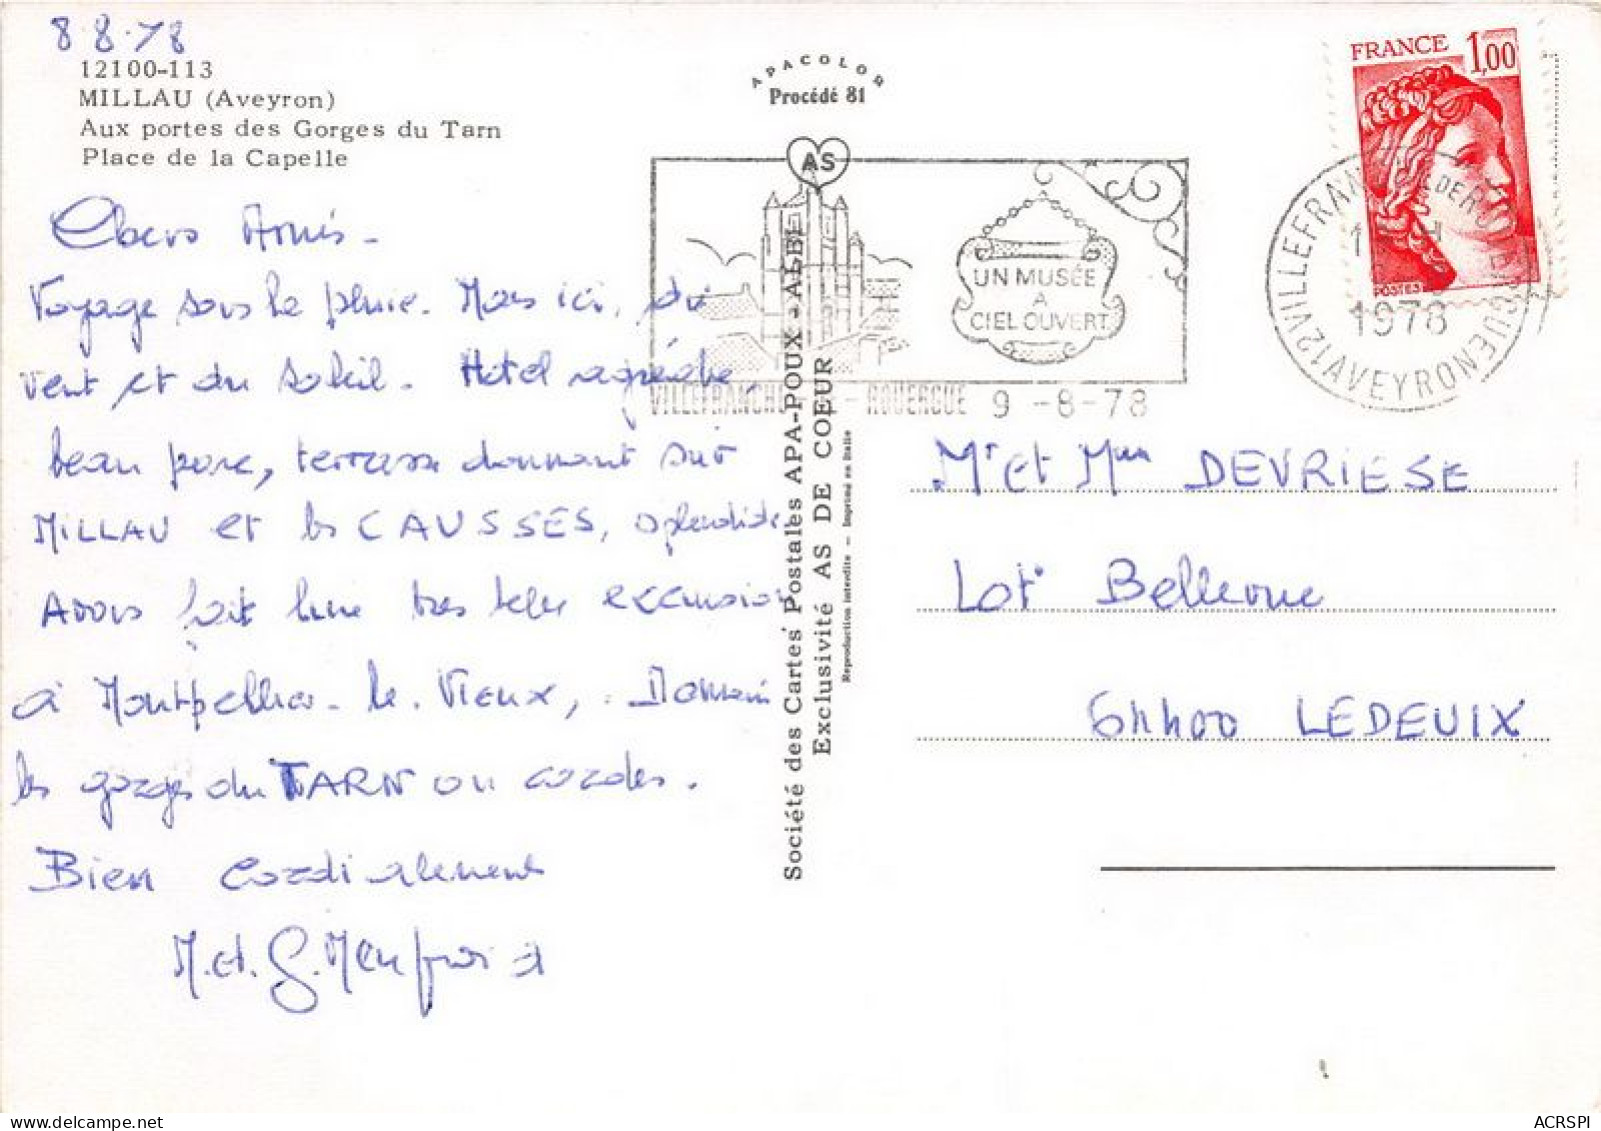 8.8.78
12100-113
MILLAU (Aveyron)
Aux portes des Gorges du Tarn
Place de la Capelle
Chers Amis -
Voyage sous la pluie. Mais ici, du
vent et du soleil. Hotel agréable,
beau parc, terrasse donnant sur
MILLAU et les CAUSSES, splendide
Avons fait une très belle excursion
à Montpellier-le-Vieux, Demain
les gorges du TARN ou cordes.
Bien cordialement
M. et G.
APACOLOR
Procédé 81
AS
UN MUSÉE
A
CIEL OUVERT
VILLEFRANCHE - ROUERGUE 9 -8-78
Société des Cartes Postales APA-POUX - ALBI
Exclusivité AS DE COEUR
Reproduction interdite - Imprimé en Italie
FRANCE 1,00
POSTES
1978
12 AVEYRON
Mr et Mme DEVRIESE
Lot Bellevue
64400 LEDEUIX
ACRSPI